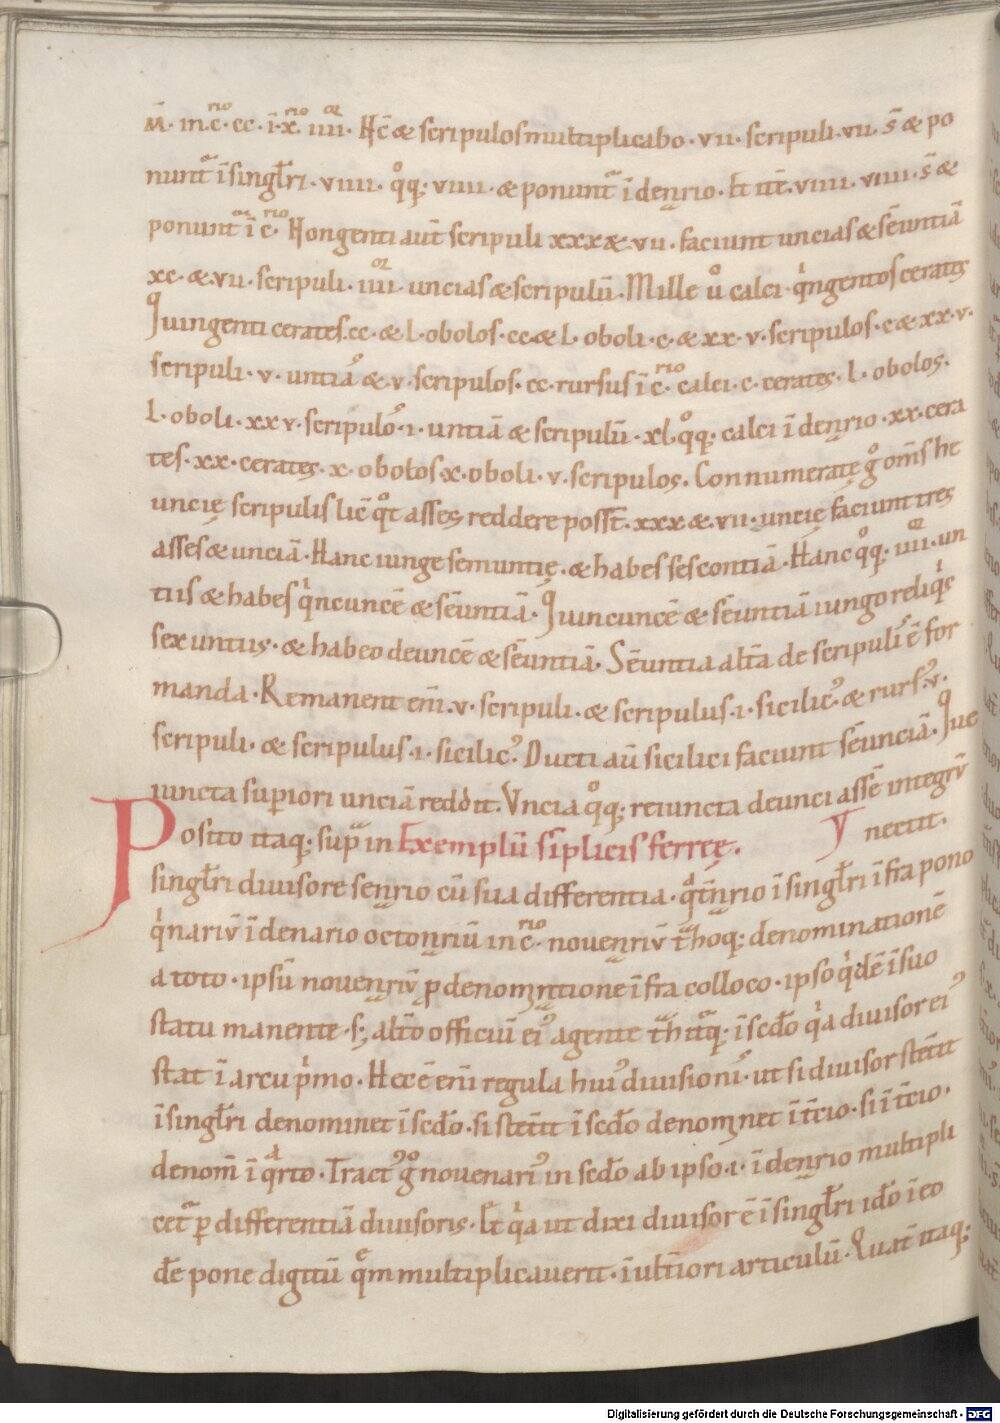 M̄. in .c̄.rio cc. ī .x̄.rio iiii.or Hc̄ & scripulos multiplicabo. vii. scripuli. vii. s̄ & po
nunt̄ ī singłri. viiii. q̊q; viiii. & ponunt̄ ī denrio. Et itē. viiii. viiii. s̄ &
ponunt̄ ī c̄.rio Nongenti aut̄ scripuli xxx & vii. faciunt uncias & sēuntiā
xc. & vii. scripuli. iiii.or uncias & scripulū. Mille ů calci. qͥngentos cerates
Quingenti cerates. cc. & l. obolos. cc & l. oboli. c. & xx. v. scripulos. c & xx. v.
scripuli. v. untiā & v. scripulos. cc. rursus ī c̄.rio calci. c. cerates. l. obolos.
l. oboli. xxv. scripulos. i. untiā & scripulū. xl. q̊q; calci ī denrio. xx. cera
tes. xx. cerates. x. obolos. x. oboli. v. scripulos. Connumeratę g̊ om̄s he
uncię scripulis lic̄ q̊t asses reddere possт̄. xxx & vii. uncię faciunt tres
asses & unciā. Hanc iunge semuntię. & habes sescontiā. Hanc q̊q; iiii.or un
tiis & habes qͥncuncē & sēuntiā. Quincuncē & sēuntiā iungo reliqͥs
sex untiis. & habeo deuncē & sēuntiā. Sēuntia alt̄a de scripulis ē for
manda. Remanent eni̅. v. scripuli. & scripulus. i. sicilic᾽. & rurs᾽. v.
scripuli. & scripulus. i. sicilic᾽. Ducti aū sicilici faciunt sēunciā. Que
iuncta sup̄iori unciā reddit. Uncia q̊q; reiuncta deunci assē integrū
Posito itaq; sup̄ in Exemplū siplicis ferreę. nectit.
singłri divisore senrio cū sua differentia. qͣt̄nrio ī singłri īfra pono
qͥnariū ī denario octonriū in c̄.rio novenriū t̄hoq; denominationē
a toto. ipsū novenriū ꝑ denomntione īfra colloco. ipso qͥdē ī suo
statu manente. s; alt̄o officiū ei᾽ agente t̄h itaq; ī scdo qͥa divisor ei᾽
stat ī arcu pͥmo. Hec ē eni̅ regula hui᾽ divisionis. ut si divisor stet̄it
ī singłri denominet ī scdo. si stet̄it ī scdo denomnet ī t̄cio. si ī t̄cio.
denom̄ ī qͣrto. Tract᾽ g̊ novenari᾽ in scdo ab ipso. i. ī denrio multipli
cet̄ ꝑ differentiā divisoris. Et qͥa ut dixi divisor ē ī singłri ido ī eo
dē pone digitū quem multiplicaverit. ī ult̄iori articulū. Quat̄ itaq;
Digitalisierung gefördert durch die Deutsche Forschungsgemeinschaft - DFG